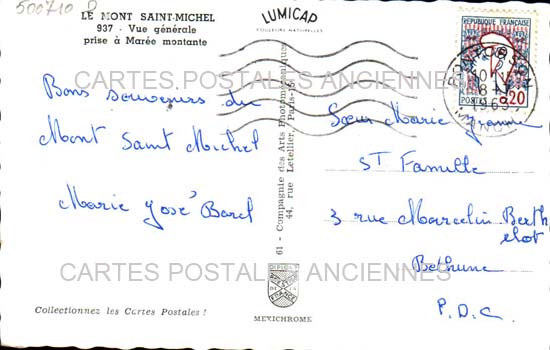 500710 D
LE MONT SAINT-MICHEL
937 - Vue générale
prise à Marée montante
LUMICAP
COULEURS NATURELLES
REPUBLIQUE FRANÇAISE
POSTES 0,20
PONTORSON
18 H
MANCHE
CARTES POSTALES ANCIENNES
Bons souvenirs du
Mont Saint Michel
Marie José Barel
61 - Compagnie des Arts Photomécaniques
44, rue Letellier, Paris-15e
Sœur Marie Jeanne
ST Famille
3 rue Marcelin Berth
elot
Bethune
P.D.C.
CARTES POSTALES ANCIENNES
Collectionnez les Cartes Postales !
MEXICHROME